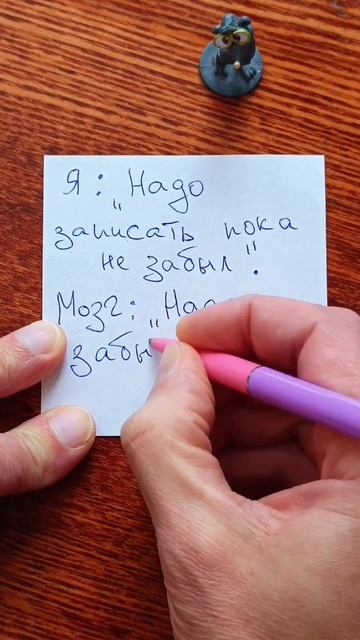 Я: „Надо
записать пока
не забыл".
Мозг: „Надо
забы